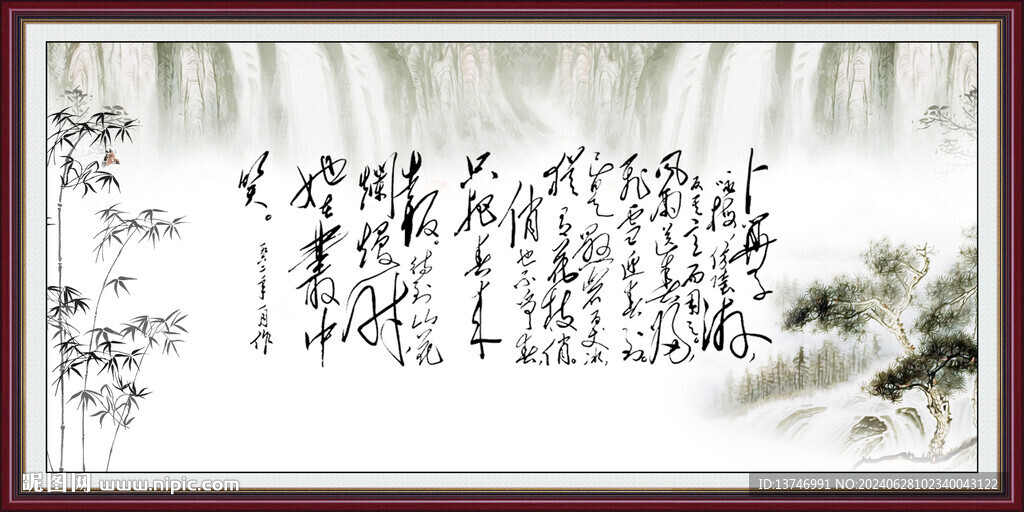 卜算子
詠梅，仿陸游，
反其意而用之。
風雨送春歸，
飛雪迎春到。
已是懸崖百丈冰，
猶有花枝俏。
俏也不爭春，
只把春來
報。待到山花
爛熳時
她在叢中
笑。
一九六二年一月作
昵图网 www.nipic.com
ID:13746991 NO:20240628102340043122